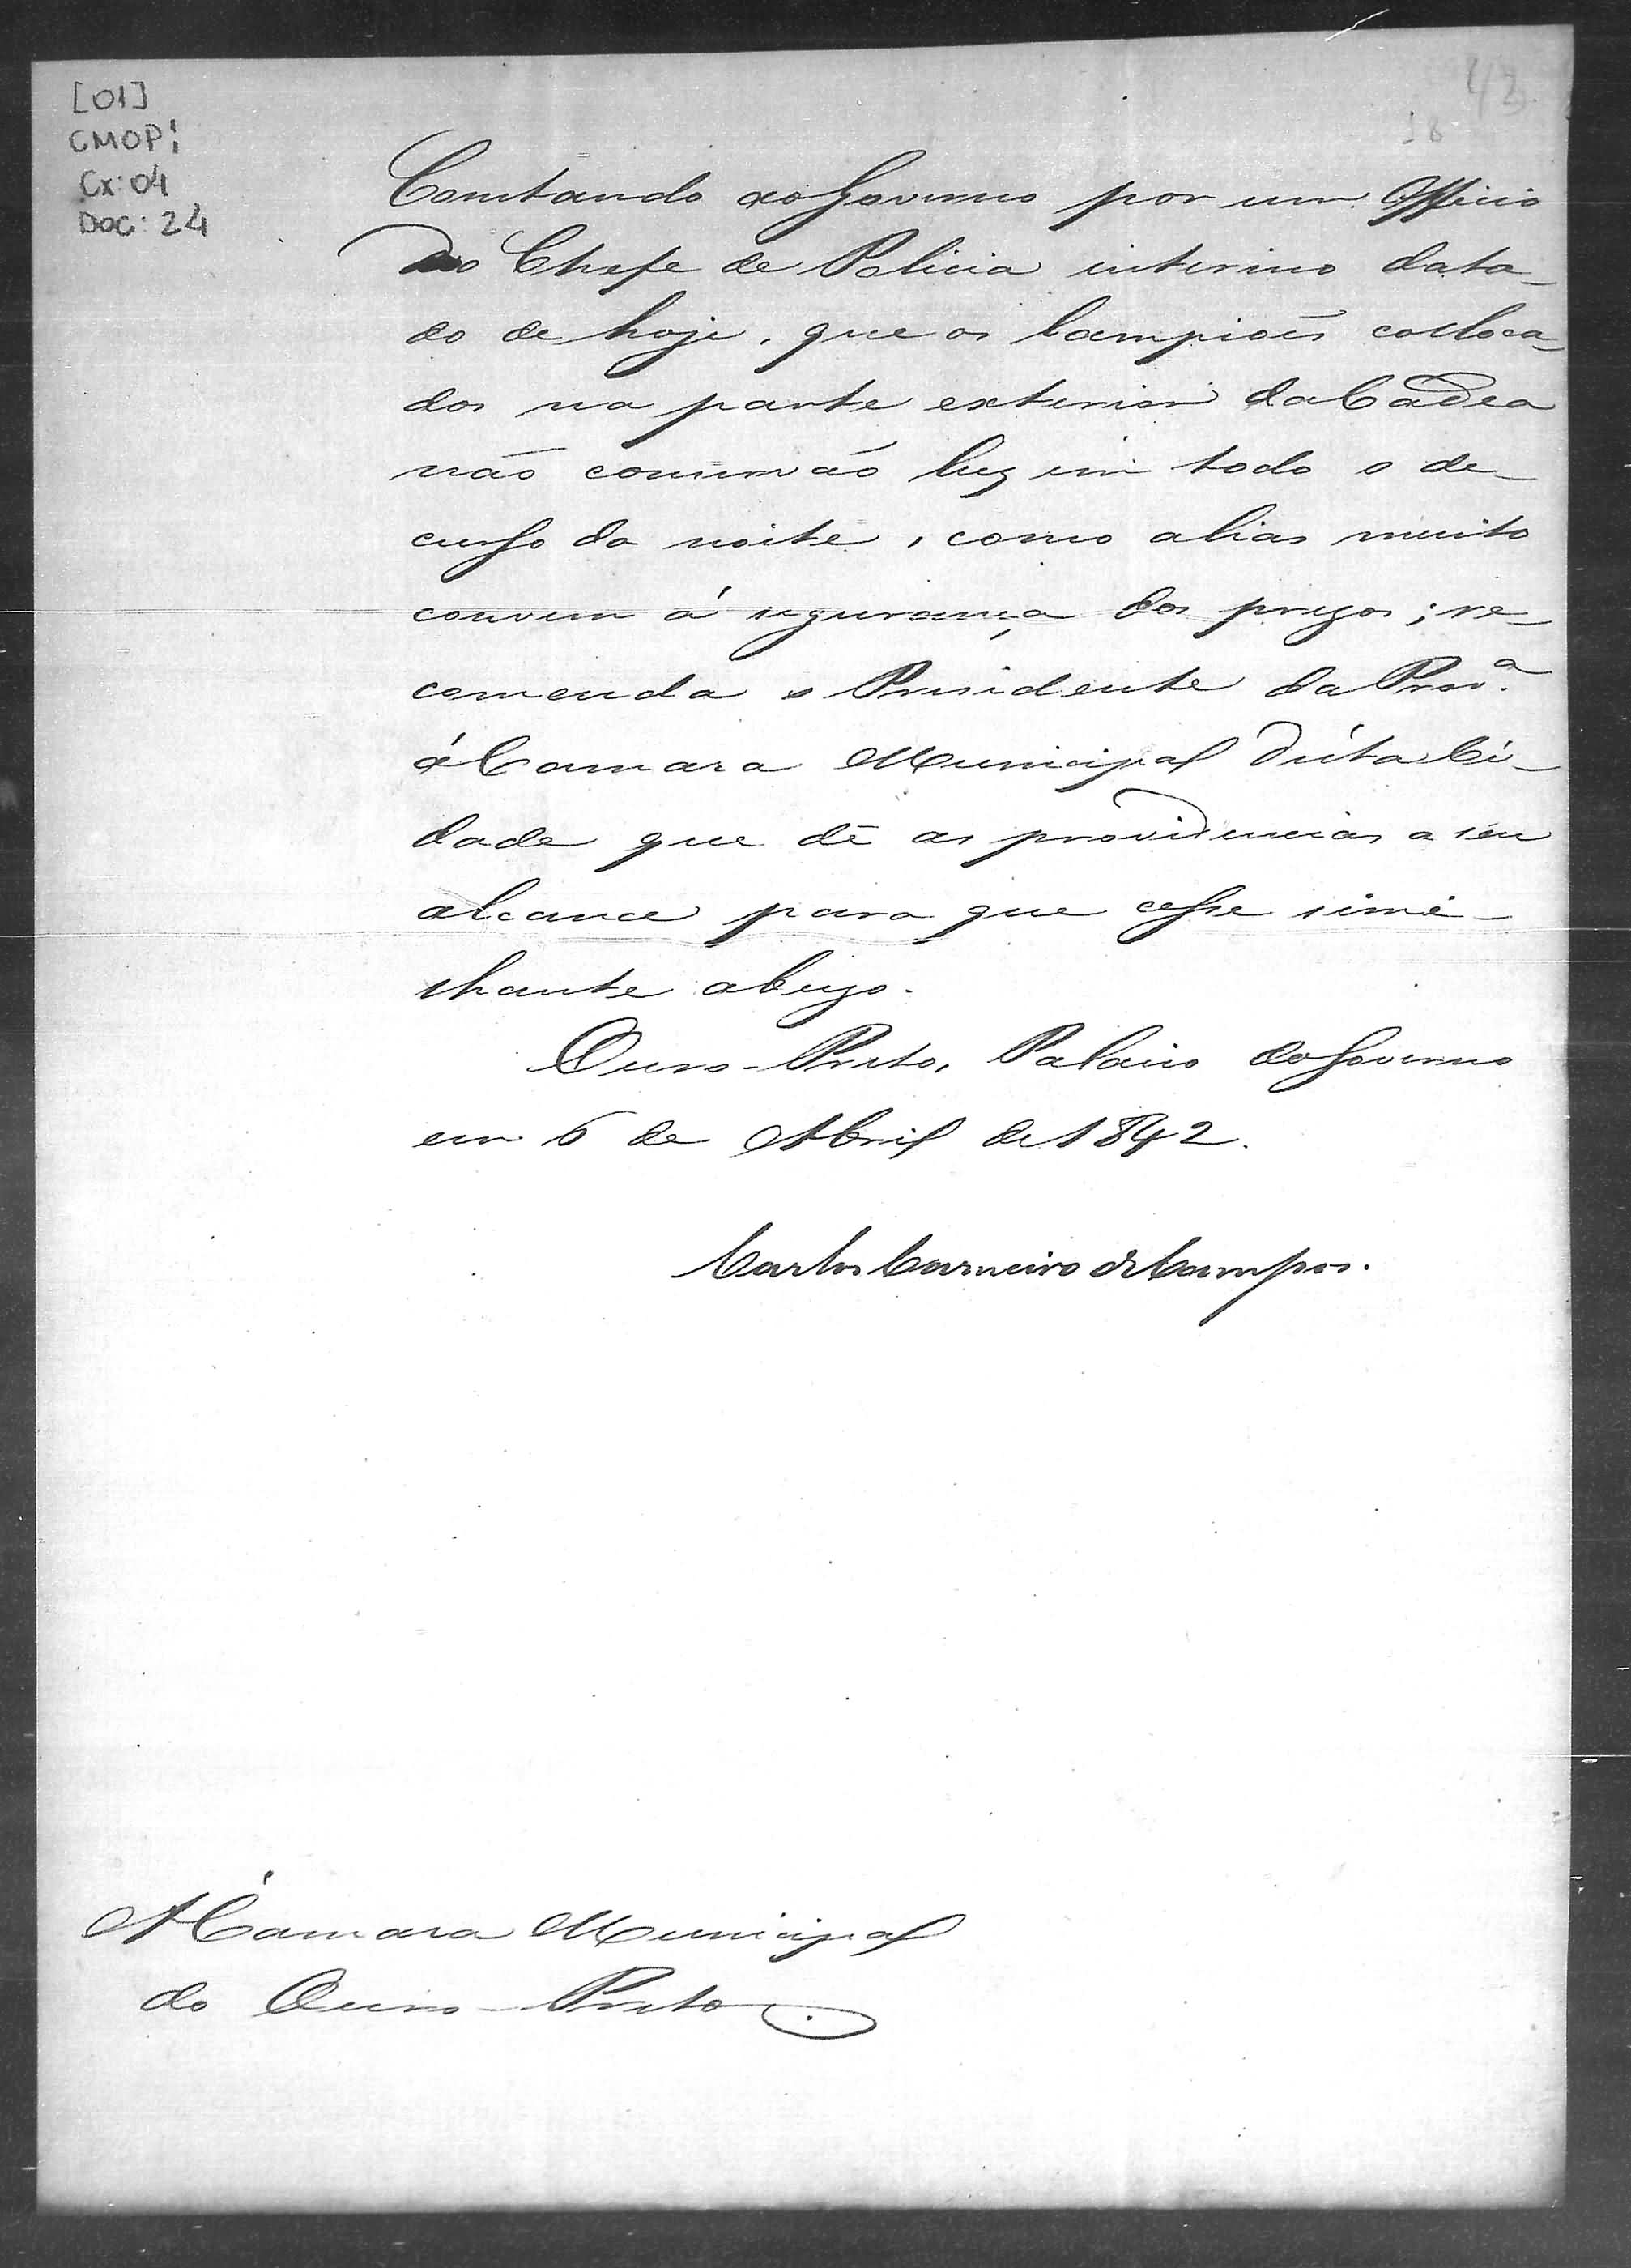 [01]
CMOP:
Cx: 04
Doc: 24
42
18
Constando ao Governo por um Officio
do Chefe de Policia interino data_
do de hoje, que os lampioẽs colloca_
dos na parte exterior da Cadea
não conservão luz em todo o de_
curso da noite, como alias muito
convem á segurança dos prezos; re_
comenda o Presidente da Prov.ª
á Camara Municipal d'ésta Ci_
dade que dê as providencias a seu
alcance para que cesse simi_
lhante abuzo.
Ouro-Preto, Palacio do Governo
em 6 de Abril de 1842.
Carlos Carneiro de Campos.
Á Camara Municipal
do Ouro-Preto.